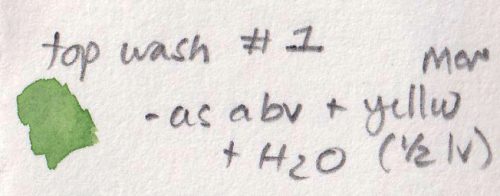 top wash #1
mor
- as abv + yellw
+ H2O (1/2 lv)